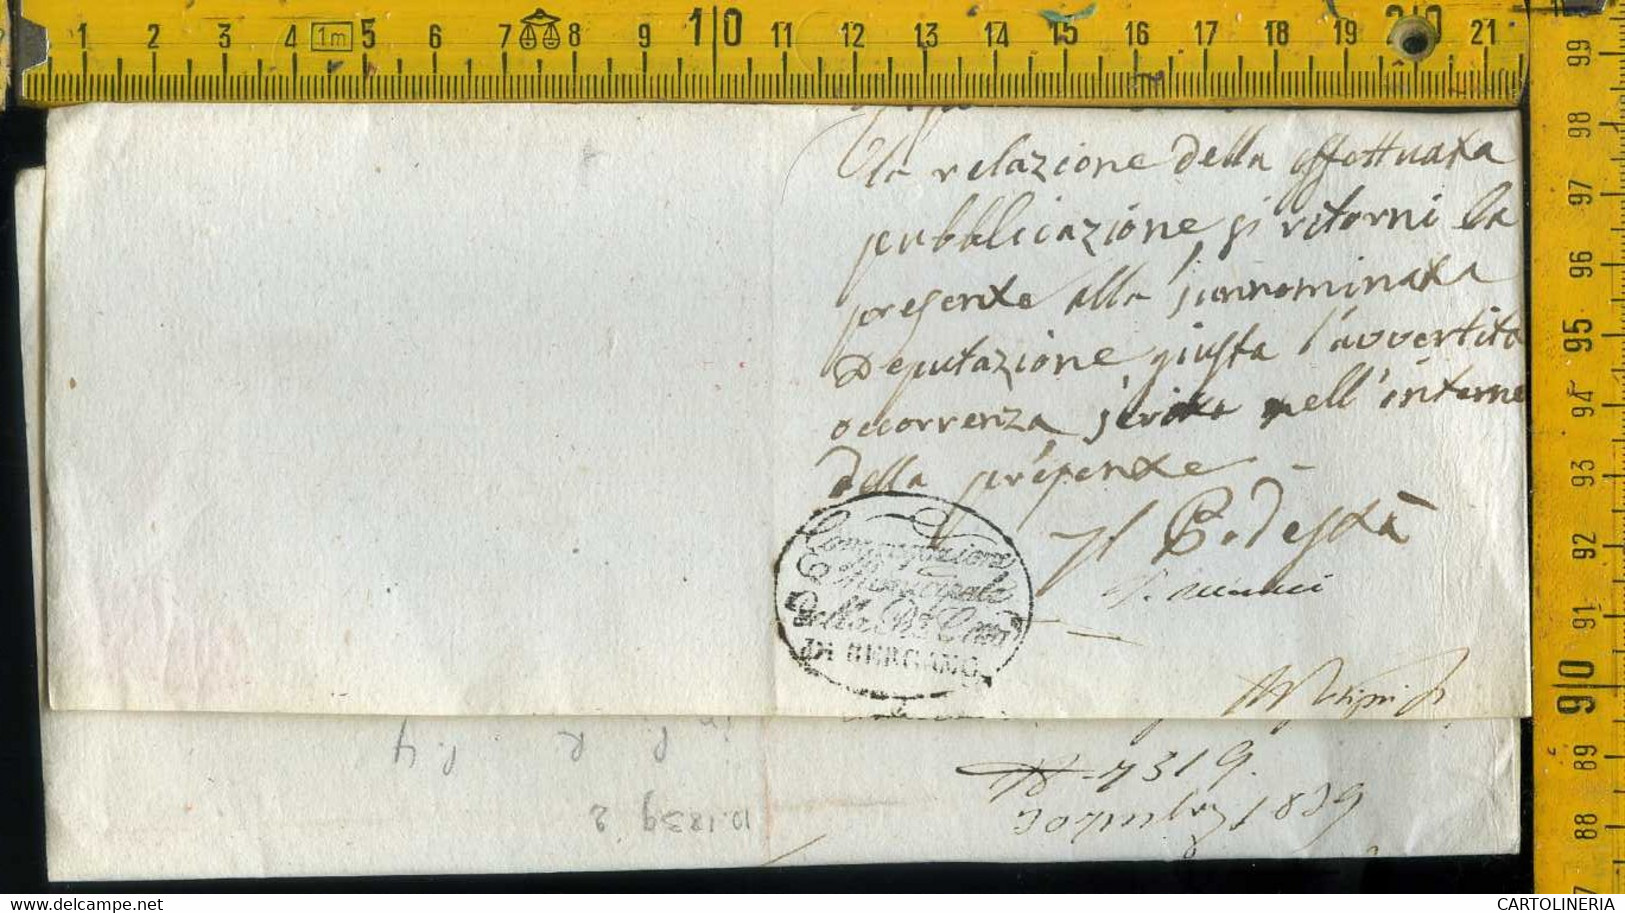 1 2 3 4 1m 5 6 7 8 9 10 11 12 13 14 15 16 17 18 19 20 21
99
98
97
96
95
94
93
92
91
90
89
88
la relazione della effettuata
pubblicazione si ritorni la
presente alla sunnominata
Deputazione giusta l'avvertita
occorrenza scritta nell'interno
della presente
Il Podestà
Congregazione
Municipale
della Ra Città
DI BERGAMO
N 7319.
1839
in P R P. 4
10.1839 2
CARTOLINERIA